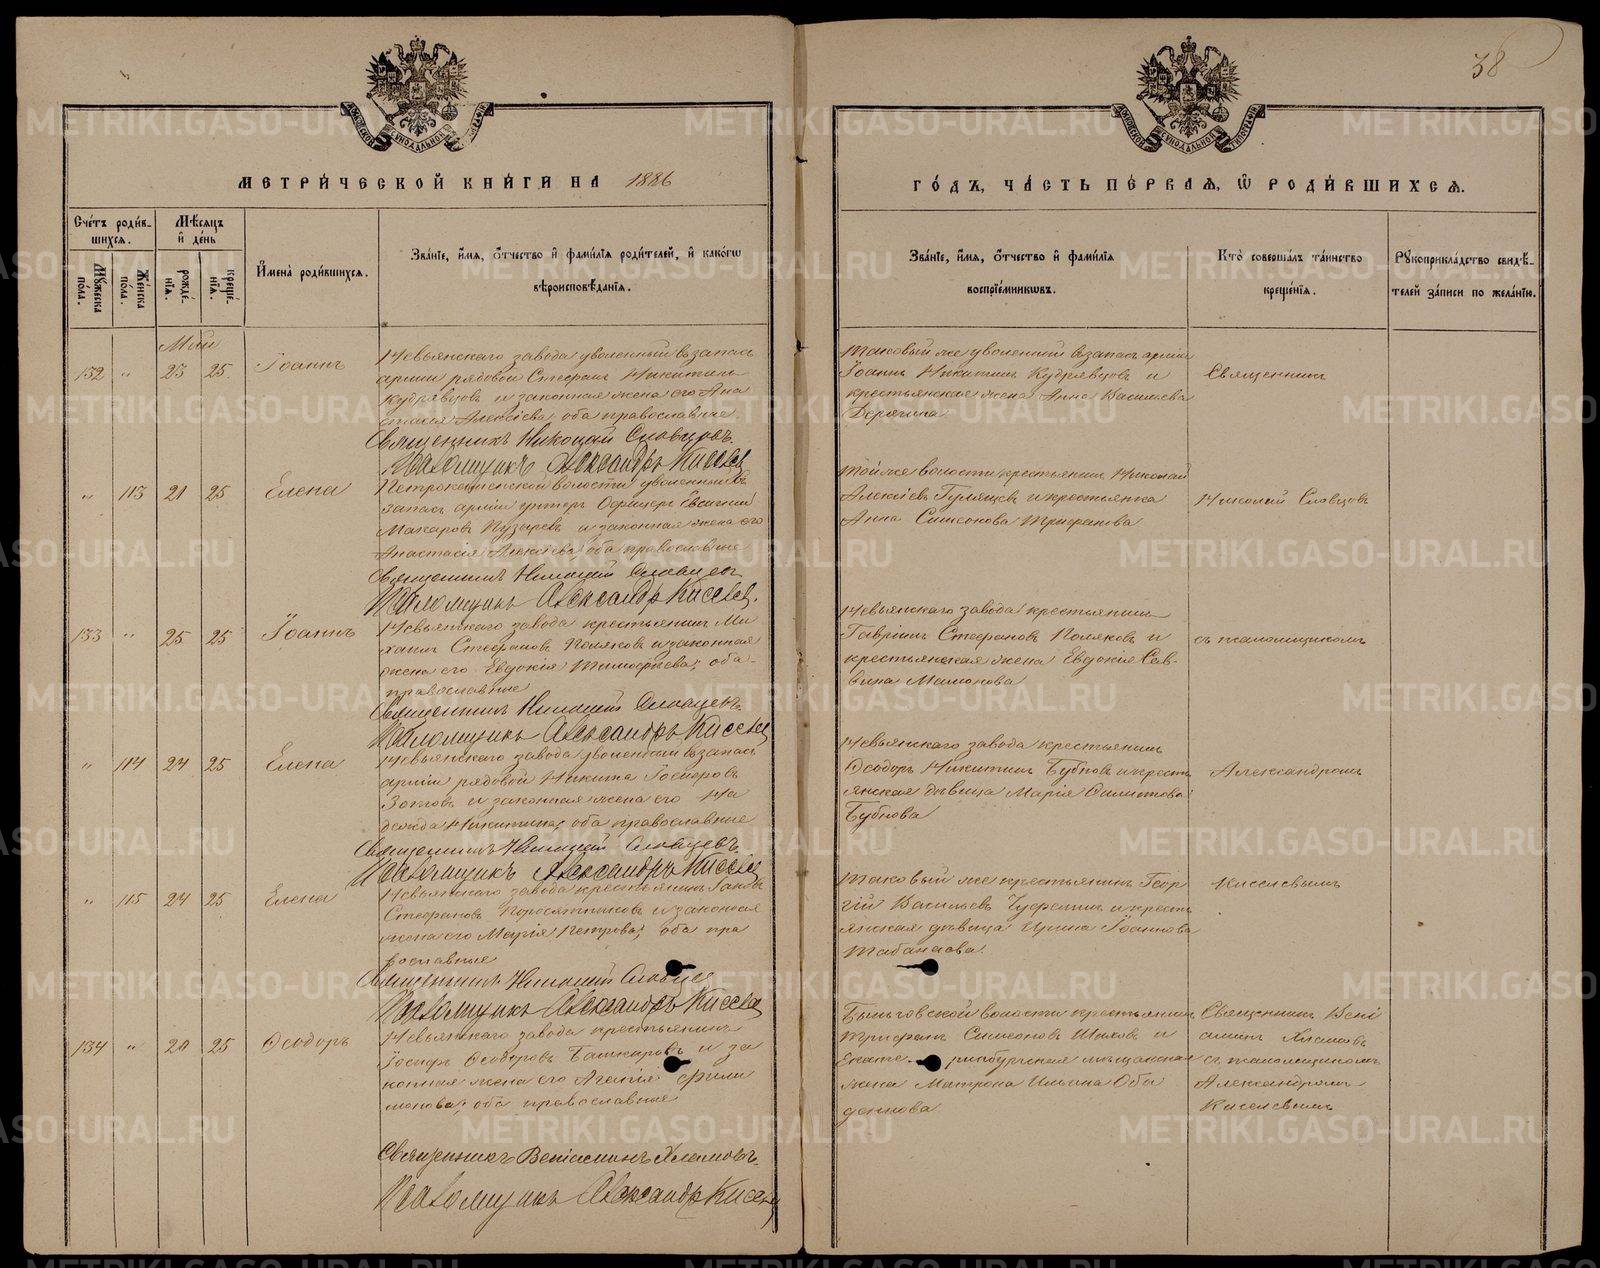 38
МОСКОВСКОЙ СѴНОДАЛЬНОЙ ТИПОГРАФІИ
МОСКОВСКОЙ СѴНОДАЛЬНОЙ ТИПОГРАФІИ
МЕТРИ́ЧЕСКОЙ КНИ́ГИ НА 1886
ГО́ДЪ, ЧА́СТЬ ПЕ́РВАЯ, Ѡ҆ РОДИ́ВШИХСЯ.
Сче́тъ роди́в-
шихся.
Мꙋ́жеска по́ла.
Же́нска по́ла.
Мѣ́сяцъ
и҆ де́нь
рожде́-
нїя.
креще́-
нїя.
И҆мена̀ роди́вшихся.
Зва́нїе, и҆́мя, ѻ҆́тчество и҆ фами́лїя роди́телей, и҆ како́гѡ
вѣроисповѣ́данїя.
Зва́нїе, и҆́мя, ѻ҆́тчество и҆ фами́лїя
воспрїе́мникѡвъ.
Кто̀ соверша́лъ та́инство
креще́нїя.
Рꙋкоприкла́дство свидѣ́-
телей за́писи по жела́нїю.
Май
132 " 23 25 Іоаннъ
Невьянскаго завода уволенный в запасъ
арміи рядовой Стефанъ Никитинъ
Кудрявцовъ и законная жена его Ана
стасія Алексіева, оба православные.
Священникъ Николай Словцовъ.
Псаломщикъ Александръ Киселев
Таковый же уволенный в запасъ арміи
Іоаннъ Никитинъ Кудрявцовъ и
крестьянская жена Анна Васильева
Дерягина
Священникъ
" 113 21 25 Елена
Петрокаменской волости уволенный въ
запасъ арміи унтеръ Офицеръ Евгеній
Макаровъ Пузыревъ и законная жена его
Анастасія Алексіева, оба православные
Священникъ Николай Словцовъ
Псаломщикъ Александръ Киселев.
Той же волости крестьянинъ Николай
Алексіевъ Гуляцевъ и крестьянка
Анна Симеонова Трифанова
Николай Словцовъ
133 " 25 25 Іоаннъ
Невьянскаго завода крестьянинъ Ми
хаилъ Стефановъ Поляковъ и законная
жена его Евдокія Тимофіева, оба
православные
Священникъ Николай Словцовъ.
Псаломщикъ Александръ Киселев
Невьянскаго завода крестьянинъ
Гавріилъ Стефановъ Поляковъ и
крестьянская жена Евдокія Сав-
вина Мамонова
съ псаломщикомъ
" 114 24 25 Елена
Невьянскаго завода уволенный в запасъ
арміи рядовой Никита
Зотовъ и законная жена его На
дежда Никитина, оба православные
Священникъ Николай Словцовъ.
Псаломщикъ Александръ Киселев
Невьянскаго завода крестьянинъ
Ѳеодоръ Никитинъ Бубновъ и кресть
янская дѣвица Марія
Бубнова
Александромъ
" 115 24 25 Елена
Невьянскаго завода крестьянинъ Іаковъ
Стефановъ Поросятниковъ и законная
жена его Марія Петрова, оба пра
вославные
Священникъ Николай Словцов
Псаломщикъ Александръ Киселев
Таковый же крестьянинъ Геор
гій Васильевъ и кресть
янская дѣвица Ирина Іоаннова
Табанакова.
Киселевымъ
134 " 20 25 Ѳеодоръ
Невьянскаго завода крестьянинъ
Іосифъ Ѳеодоровъ Башкировъ и за
конная жена его Агапія Фили
монова, оба православные
Священникъ Веніаминъ Хламовъ.
Псаломщикъ Александръ Киселев
Быньговской волости крестьянинъ
Трифанъ Симеоновъ и
Екате ринбургская мѣщанская
жена Матрона Ильина Оба
денкова
Священникъ Вені
аминъ Хламовъ
съ псаломщикомъ
Александромъ
Киселевымъ
METRIKI.GASO-URAL.RU